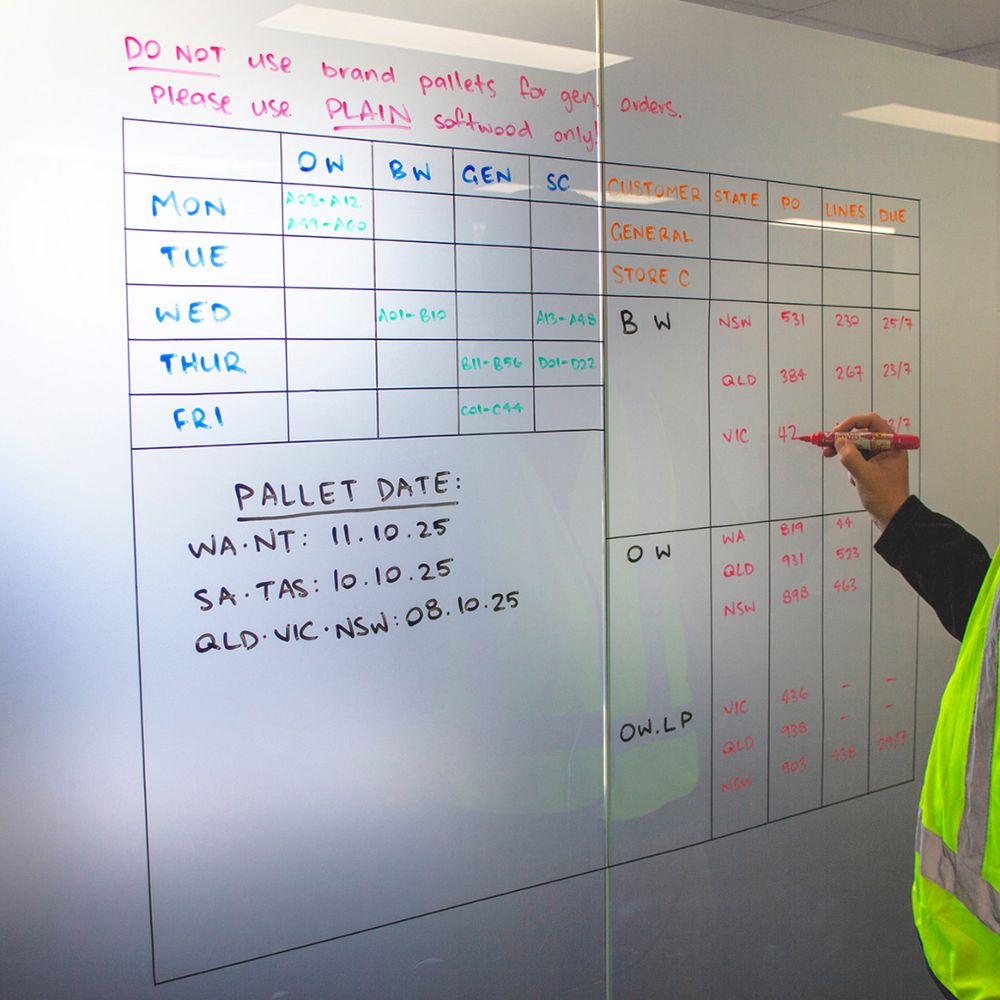 DO NOT use brand pallets for gen. orders.
Please use PLAIN softwood only!
OW BW GEN SC
MON A03-A12
A49-A60
TUE
WED A01-B10 A13-A48
THUR B11-B56 D01-D22
FRI C01-C44
PALLET DATE:
WA·NT: 11.10.25
SA·TAS: 10.10.25
QLD·VIC·NSW: 08.10.25
CUSTOMER STATE PO LINES DUE
GENERAL
STORE C
BW NSW 531 230 25/7
QLD 384 267 23/7
VIC 42
OW WA 819 44
QLD 931 523
NSW 898 463
OW.LP VIC 436 - -
QLD 938 - -
NSW 903 438 29/7